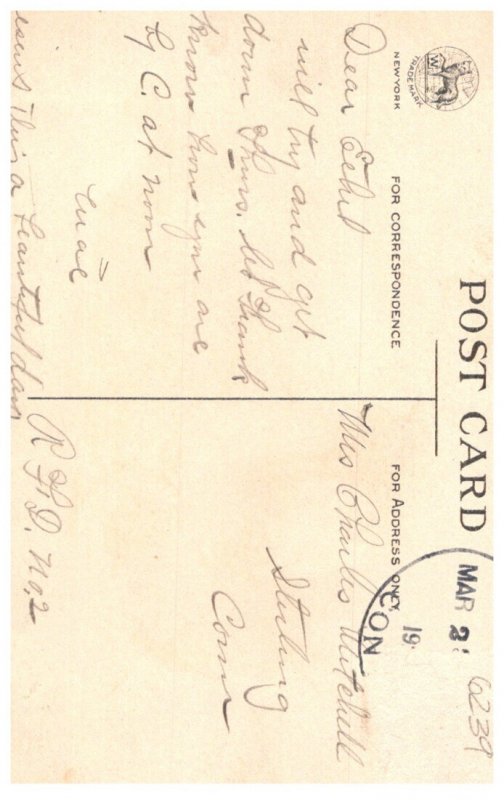 POST CARD
TRADE MARK
W
NEW YORK
FOR CORRESPONDENCE
FOR ADDRESS ONLY
MAR 2
19
CON
6239
Dear Ethel
will try and get
down Thurs. let Frank
know how you are
by C. at noon
This a beautiful day
Mrs Charles Mitchell
Sterling
Conn
R.F.D. No. 2